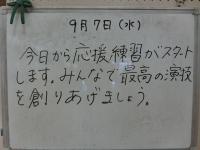 9月7日(水)
今日から応援練習がスタート
します。みんなで最高の演技
を創りあげましょう。